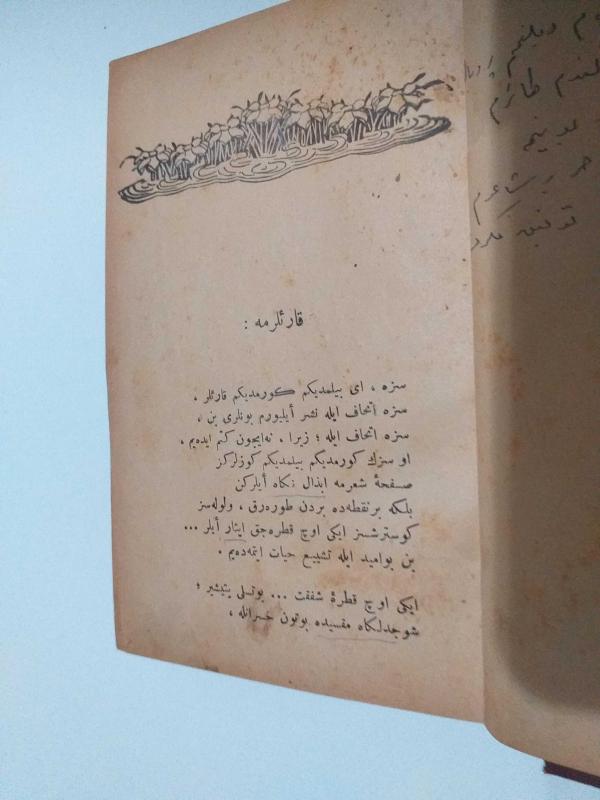 قارئلرمه :
سزه ، ای بیلمدیکم کورمدیکم قارئلر ،
سزه اتحاف ایله نشر أیلیورم بونلری بن ،
سزه اتحاف ایله ؛ زیرا ، نه‌ایچون کتم ایده‌یم ،
او سزك کورمدیکم بیلمدیکم کوزلرکز
صفحهٔ شعرمه ابذال نکاه أیلرکن
بلکه برنقطه‌ده بردن طوره‌رق ، ولوله‌سز
کوسترشسز ایکی اوچ قطره‌جق ایثار أیلر ...
بن بوامید ایله تشییع حیات ایتمه‌ده‌یم .
ایکی اوچ قطرهٔ شفقت ... بوتسلی یتیشیر ؛
شوجدلکاه مفسیده بوتون خسرانله ،
طازم
شاعرم